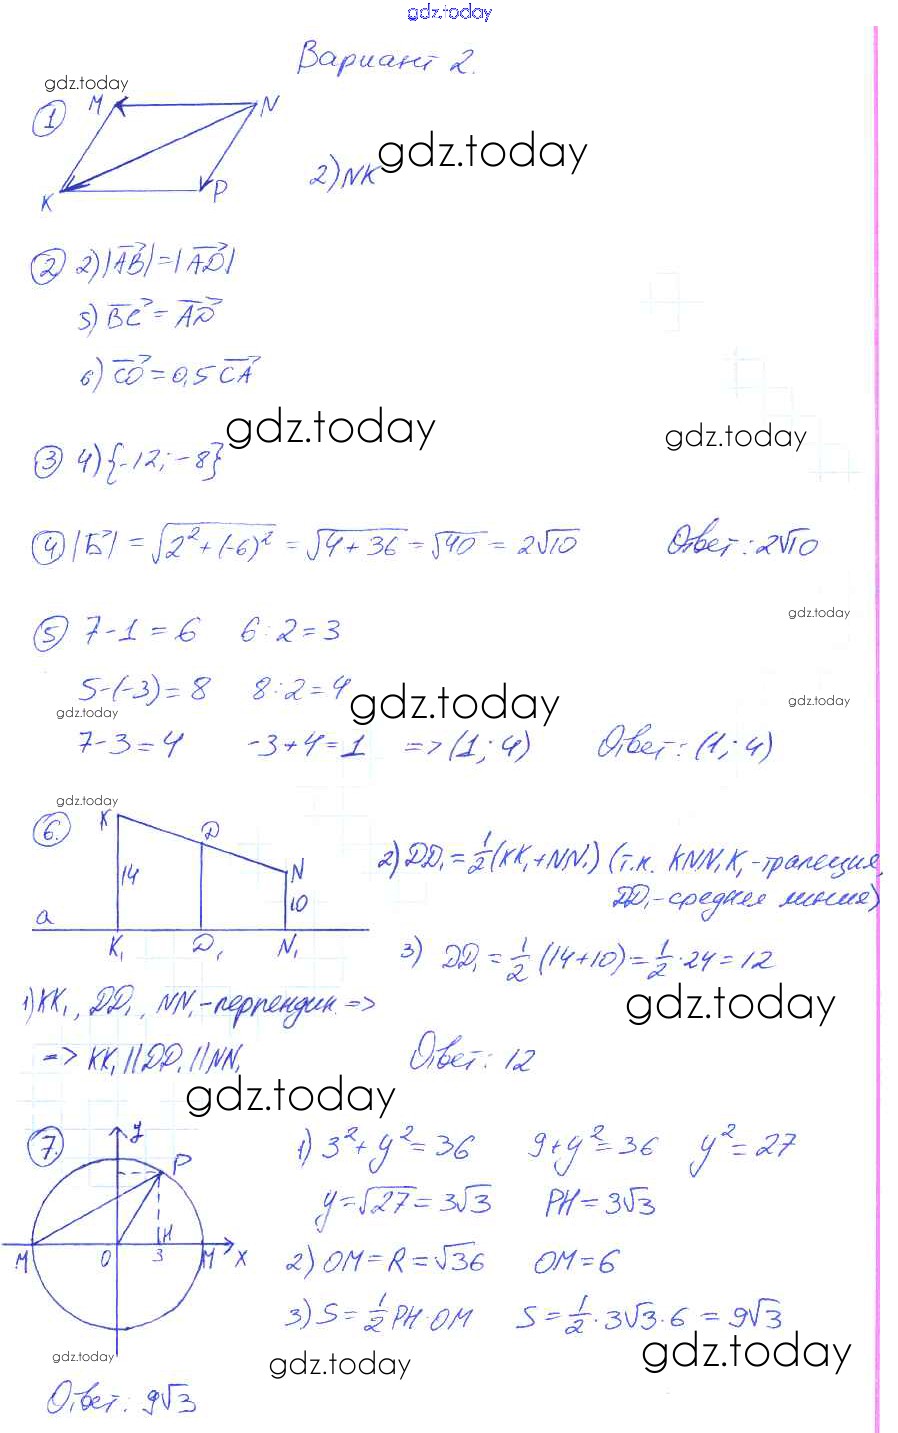 gdz.today
Вариант 2.
gdz.today
1 M N
gdz.today
2) NK
K P
2 2) |AB| = |AD|
5) BC = AD
6) CO = 0,5 CA
gdz.today
gdz.today
3 4) {-12; -8}
4 |Б| = √2² + (-6)² = √4 + 36 = √40 = 2√10 Ответ: 2√10
gdz.today
5 7 - 1 = 6 6 : 2 = 3
5 - (-3) = 8 8 : 2 = 4
gdz.today
gdz.today
gdz.today
7 - 3 = 4 -3 + 4 = 1 => (1; 4) Ответ: (1; 4)
gdz.today
6. K D N
14 10
a
K₁ D₁ N₁
2) DD₁ = 1/2 (KK₁ + NN₁) (т.к. KNN₁K₁ - трапеция,
DD₁ - средняя линия)
3) DD₁ = 1/2 (14 + 10) = 1/2 · 24 = 12
gdz.today
1) KK₁, DD₁, NN₁ - перпендик. =>
=> KK₁ || DD₁ || NN₁
Ответ: 12
gdz.today
7. y P
M O 3 H M x
1) 3² + y² = 36 9 + y² = 36 y² = 27
y = √27 = 3√3 PH = 3√3
2) OM = R = √36 OM = 6
3) S = 1/2 PH · OM S = 1/2 · 3√3 · 6 = 9√3
gdz.today
gdz.today
gdz.today
Ответ: 9√3